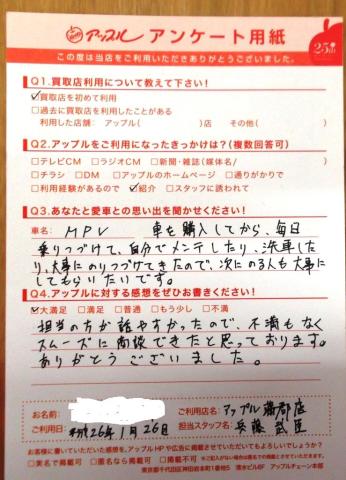 アップル アンケート用紙
25th
この度は当店をご利用いただきありがとうございました。
Q1.買取店利用について教えて下さい!
☑買取店を初めて利用
□過去に買取店を利用したことがある
利用した店舗: アップル( )店 その他( )
Q2.アップルをご利用になったきっかけは?(複数回答可)
□テレビCM □ラジオCM □新聞・雑誌(媒体名/ )
□チラシ □DM □アップルのホームページ □通りがかりで
□利用経験があるので ☑紹介 □スタッフに誘われて
Q3.あなたと愛車との思い出を聞かせてください!
車名: MPV 車を購入してから、毎日
乗りつづけて、自分でメンテしたり、洗車した
り、大事にのりつづけてきたので、次にのる人も大事に
してもらいたいです。
Q4.アップルに対する感想をぜひお書きください!
☑大満足 □満足 □普通 □もう少し □不満
担当の方が話やすかったので、不満もなく
スムーズに商談できたと思っております。
ありがとうございました。
お名前:
ご利用日: 平成26年1月26日
ご利用店名: アップル蒲郡店
担当スタッフ名:
お客様に書いていただいた感想を、アップルHPや広告に掲載させていただいてもよろしいでしょうか?
□実名で掲載可 □匿名なら掲載可 □掲載不可
東京都千代田区神田岩本町1番地5 清水ビル8F アップルチェーン本部